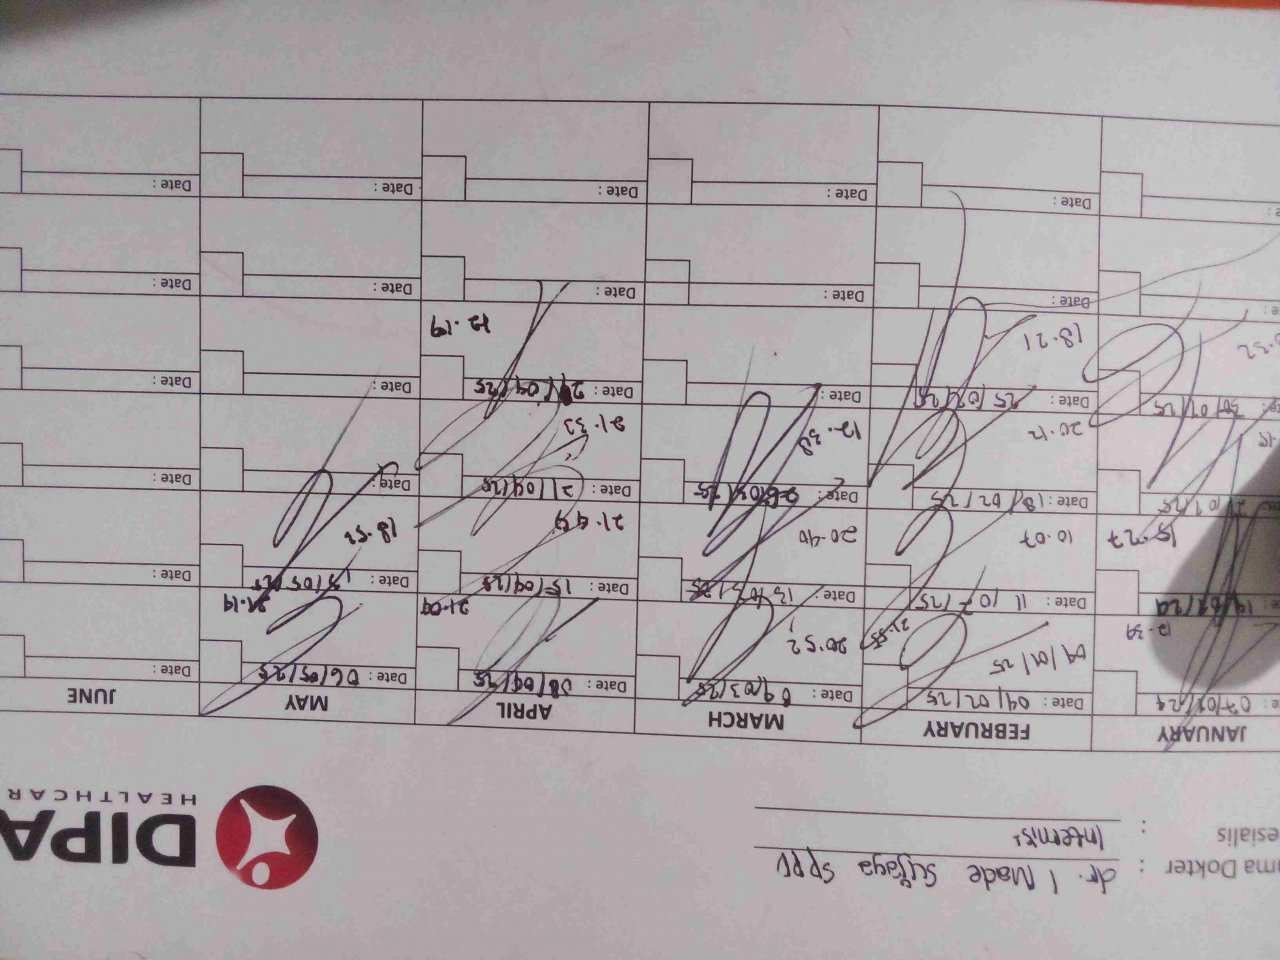 ma Dokter : dr. I Made Sujaya SpPD
esialis : Internist
DIPA
HEALTHCAR
JANUARY FEBRUARY MARCH APRIL MAY JUNE
07/01/24 Date: 04/02/25 Date: 04/03/25 Date: 08/04/25 Date: 06/05/25 Date:
12.39 04/01/25 21.55 20.52 21.09 21.19
Date: 11/02/25 Date: 13/03/25 Date: 15/04/25 Date: Date:
15.27 10.07 20.40 21.49 18.53
Date: 18/02/25 Date: 26/03/25 Date: 21/04/25 Date: Date:
20.12 12.38 21.33
30/01/25 Date: 25/02/25 Date: Date: 04/25 Date: Date:
18.21 12.19
Date: Date: Date: Date: Date:
Date: Date: Date: Date: Date: